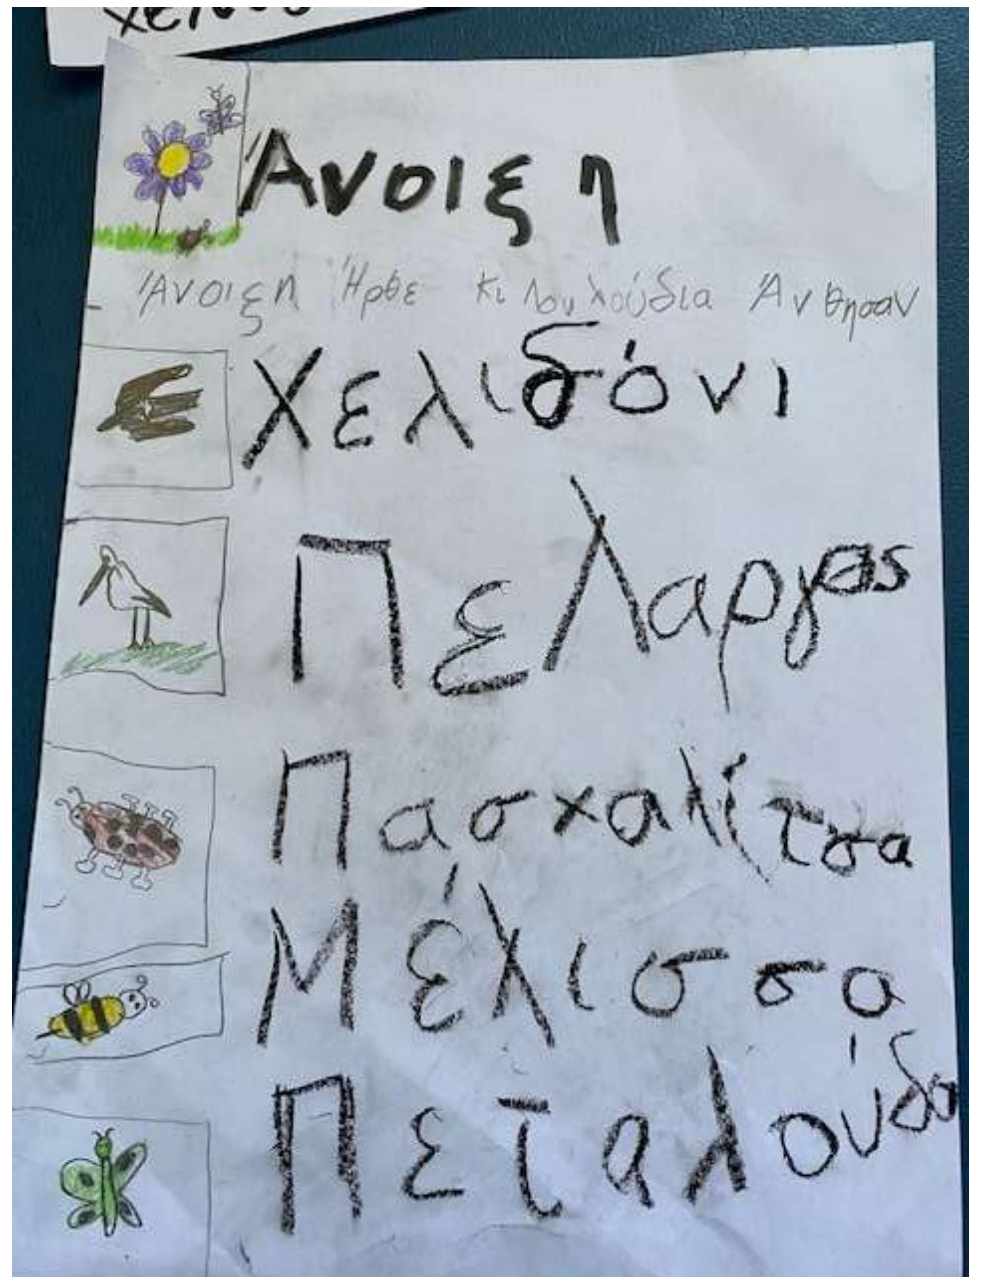 Άνοιξη
Άνοιξη Ήρθε κι λουλούδια Άνθησαν
Χελιδόνι
Πελαργος
Πασχαλίτσα
Μέλισσα
Πεταλούδα